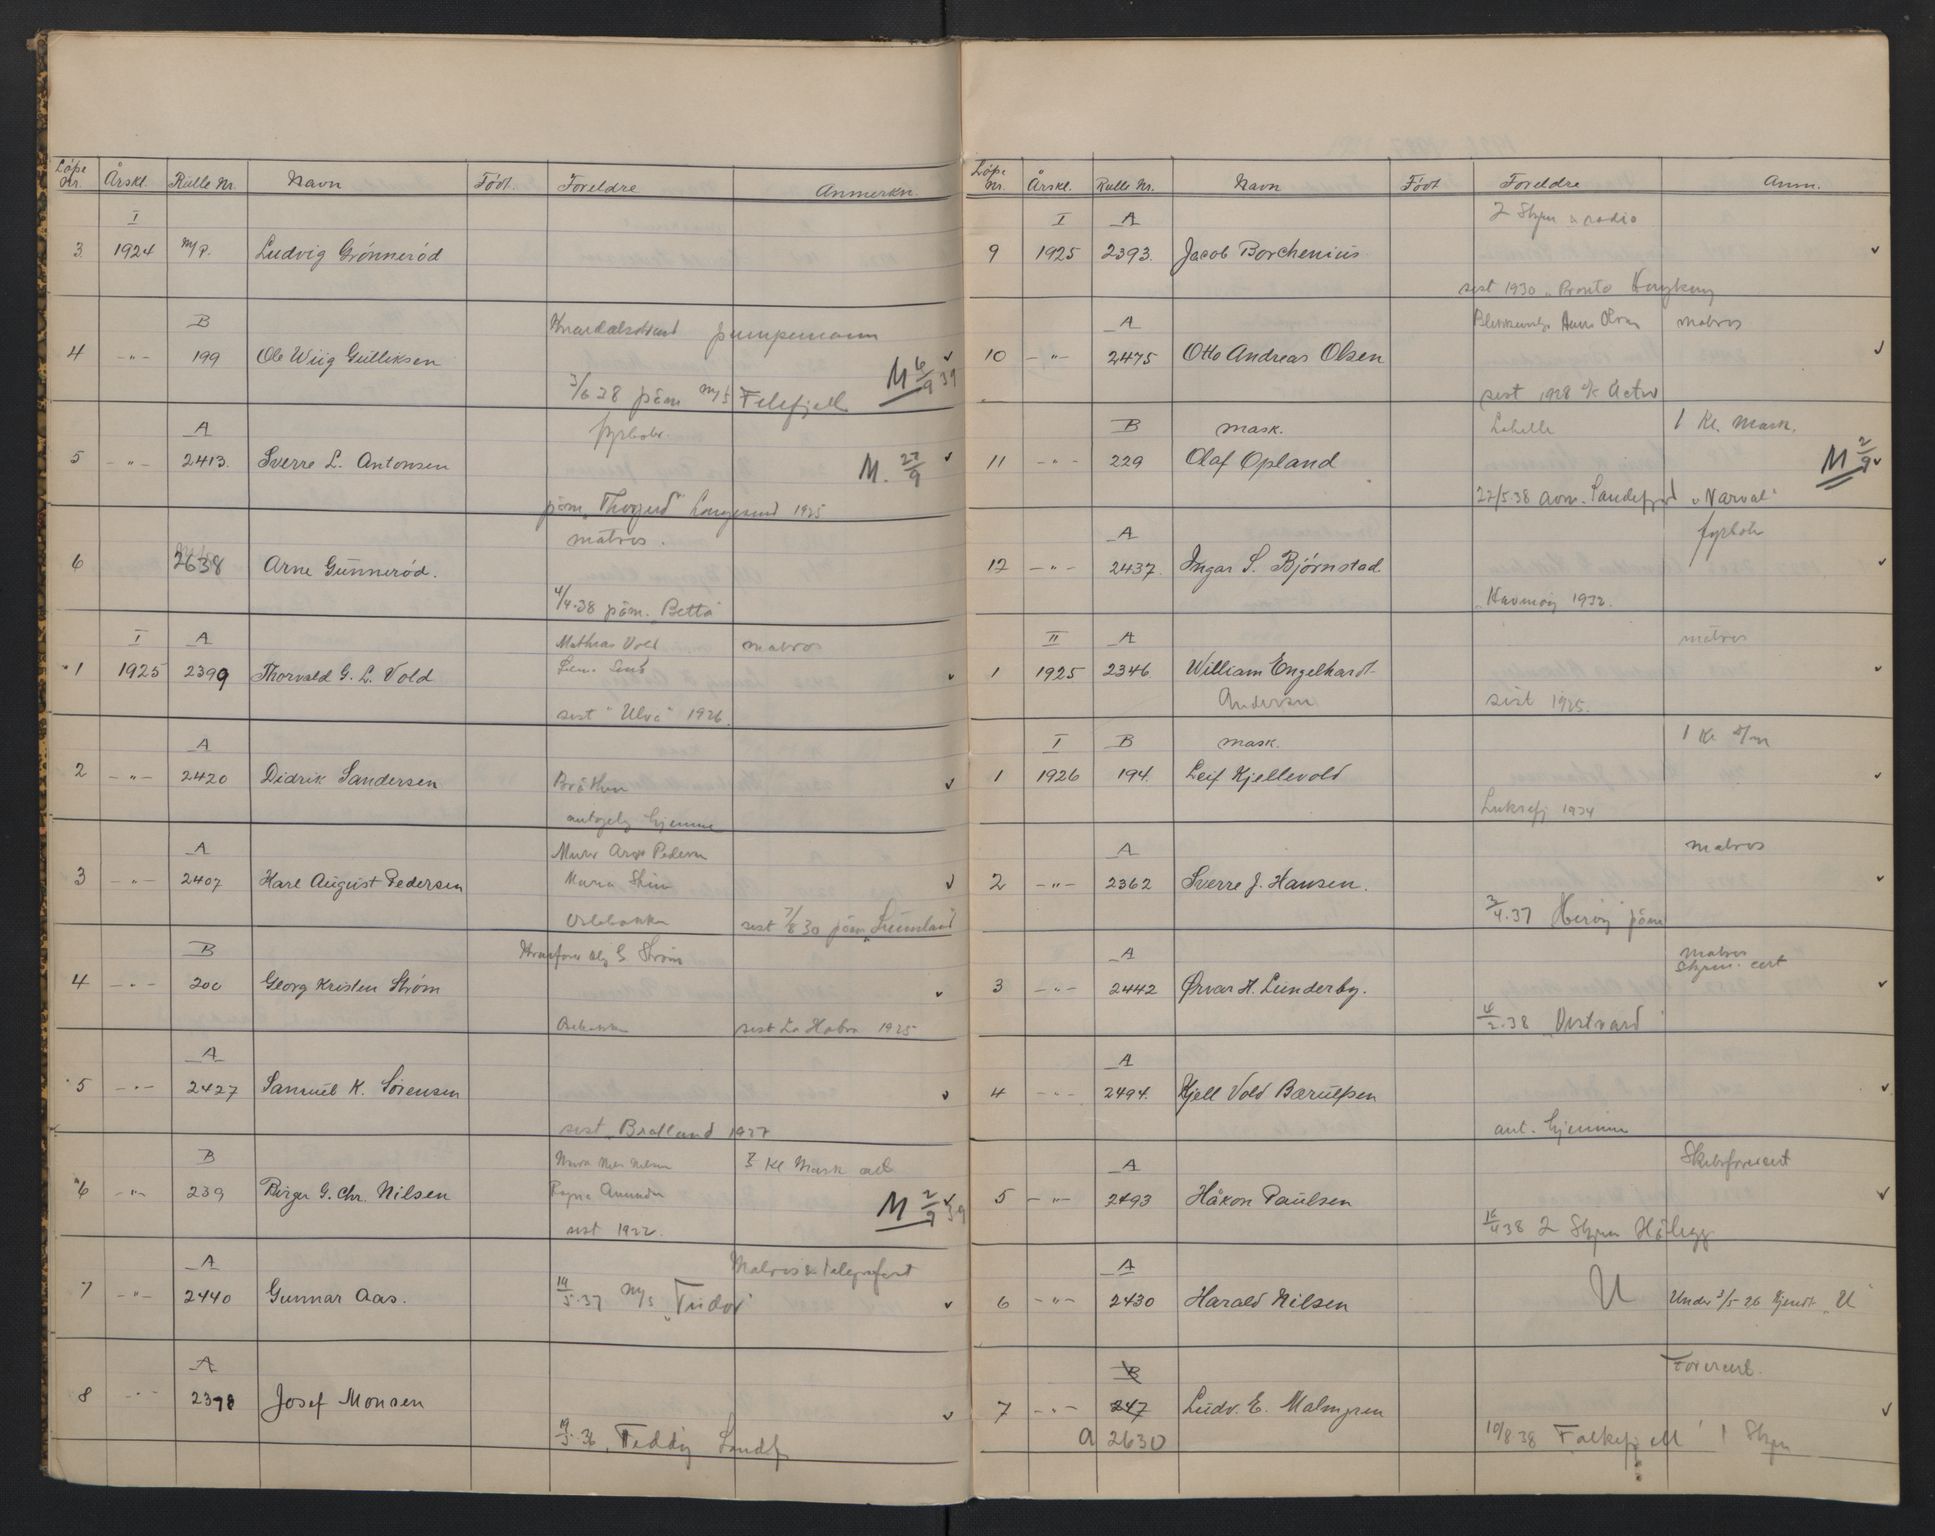 Løpe Nr. Årskl. Rulle Nr. Navn Født. Foreldre Anmerkn.
I
3 1924 M/P. Ludvig Grønnerød
B pumpemann
4 -"- 199 Ole Wiig Gulliksen M 6/9 39
3/6 38 påm M/S Telefjell
A fyrbøter
5 -"- 2413. Sverre L. Antonsen M. 22/9
påm. "Thorjerd" Langesund 1925
matros.
6 2638 Arne Gunnerød.
4/4.38 påm. "Betta"
I A Mathias Vold matros
1 1925 2399 Thorvald G. L. Vold
sist "Ulva" 1926.
A
2 -"- 2420 Didrik Sandersen Bråthen
hjemme
A Pedersen
3 -"- 2407 Karl August Pedersen
sist 7/8 30 påm
B Strøm
4 -"- 200 Georg Kristen Strøm
sist La Habra 1925
A
5 -"- 2427 Samuel K. Sørensen
sist "Bratland 1927
B Kl Mask
6 -"- 239 Birger G. Chr. Nilsen M 2/9 39
sist 1922.
A Matros & telegrafist
7 -"- 2440 Gunnar Aas. 14/5.37 M/S "Tudor"
A
8 -"- 2378 Josef Monsen
19/5.36 "Teddy"
Løpe Nr. Årskl. Rulle Nr. Navn Født Foreldre Anm.
I A 2 Styrm & radio
9 1925 2393. Jacob Borchenius
sist 1930 "Pronto Hongkong
A matros
10 -"- 2475 Otto Andreas Olsen
sist 1928
B mask. 1 Kl. Mask.
11 -"- 229 Olaf Opland M 2/9
27/5.38 avm. Sandefjord "Narval"
A fyrbøter
12 -"- 2437. Ingar S. Bjørnstad.
"Havmøy 1932.
II A matros
1 1925 2346 William Engelhardt
Andersen sist 1925.
I B mask. 1 Kl
1 1926 194. Leif Kjellevold
1934
A matros
2 -"- 2362 Sverre J. Hansen.
3/4.37 "Herøy" påm
A matros
Styrm. cert
3 -"- 2442 Ørvar H. Lunderby.
2.38 "Vestvard"
A
4 -"- 2494. Kjell Vold Bærulfsen
ant. hjemme
A
5 -"- 2493 Håkon Paulsen
4 38 2 Styrm Høegg
A
6 -"- 2430 Harald Nilsen U Under 3/5 26 kjendt "U"
B
7 -"- 247 Ludv. E. Malmgren
A 2630 10/8.38 Falkefjell 1 Styrm